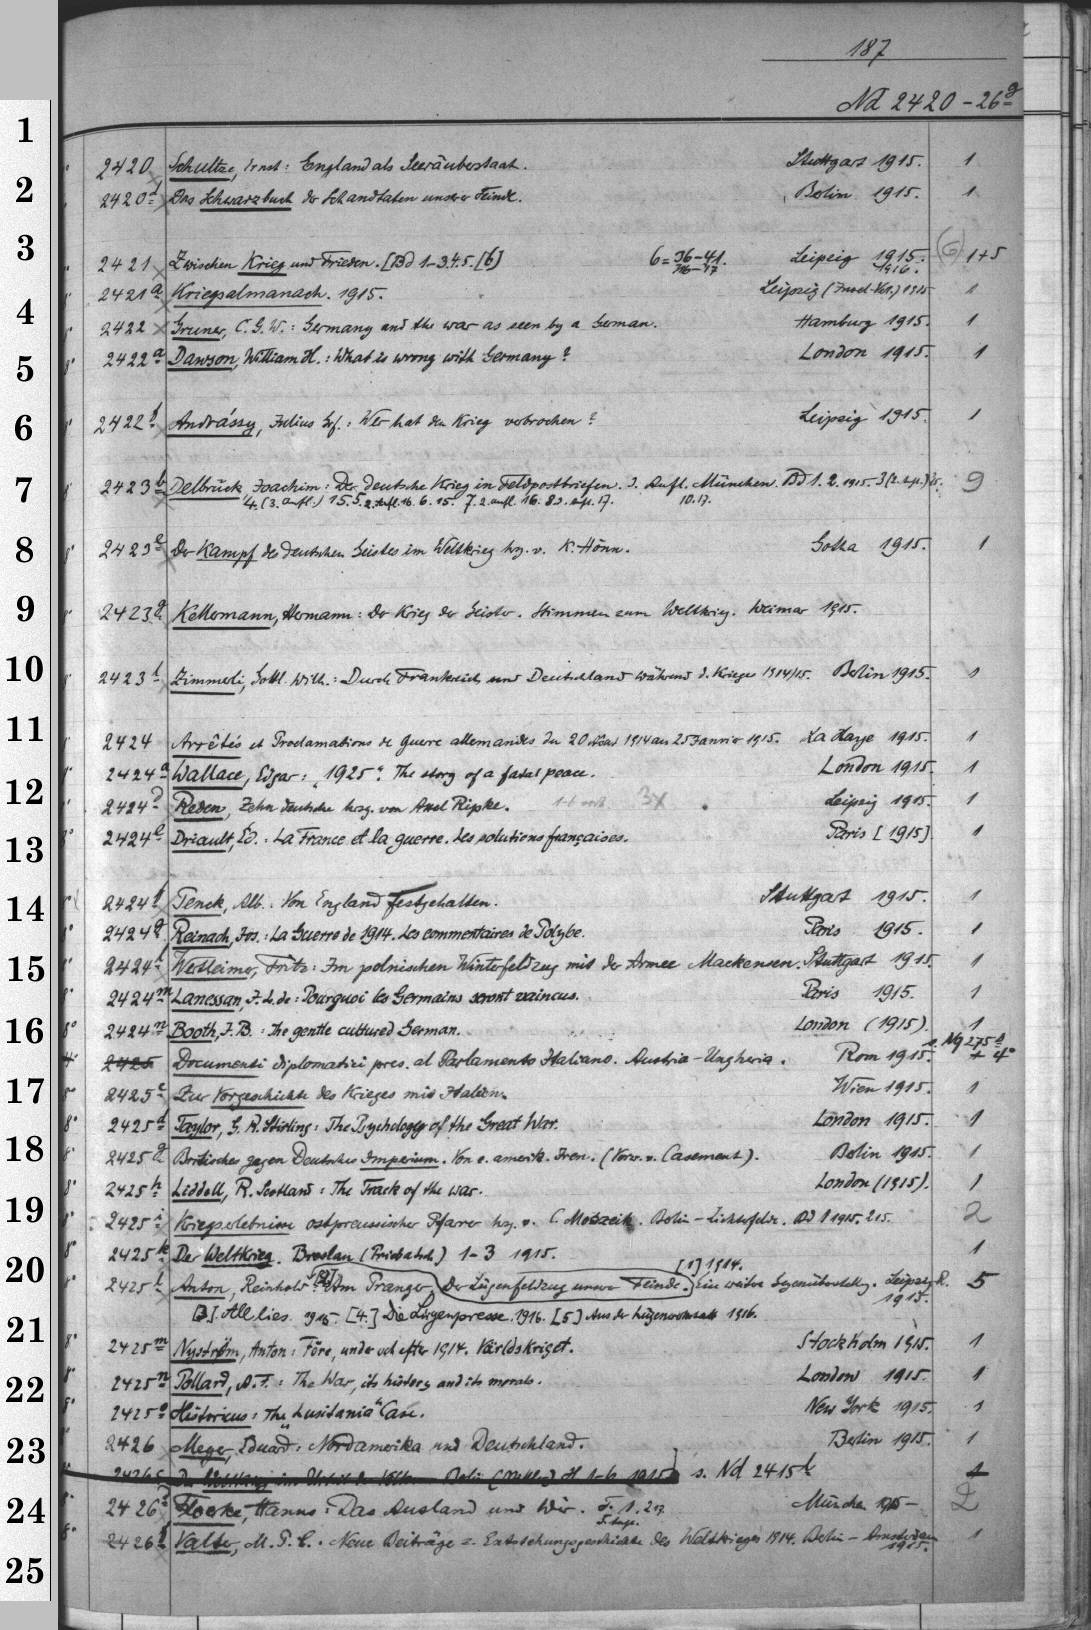 187
Nd 2420-26g
1
2420 Schultze, Ernst: England als Seeräuberstaat. Stuttgart 1915. 1
2
2420d Das Schwarzbuch der Schandtaten unserer Feinde. Berlin 1915. 1
3
2421 Zwischen Krieg und Frieden. [Bd 1-3.4.5.[6] 6=36-41. Leipzig 1915. (6) 1+5
1916.
2421a Kriegsalmanach. 1915. Leipzig (Insel-Verl.) 1915 1
4
2422 Gruner, C. G. W.: Germany and the war as seen by a German. Hamburg 1915. 1
5
8° 2422a Dawson, William H.: What is wrong with Germany? London 1915. 1
6
2422b Andrássy, Julius Grf.: Wer hat den Krieg verbrochen? Leipzig 1915. 1
7
2423b Delbrück, Joachim: Der deutsche Krieg in Feldpostbriefen. 3. Aufl. München. Bd 1. 2. 1915. 9
10.17.
8
8° 2423e Der Kampf des deutschen Geistes im Weltkrieg hg. v. K. Hönn. Gotha 1915. 1
9
2423g Kellermann, Hermann: Der Krieg der Geister. Stimmen zum Weltkrieg. Weimar 1915.
10
2423l Zimmerli, Gottl. Wilh.: Durch Frankreich und Deutschland während d. Krieges 1914/15. Berlin 1915. 1
11
2424 Arrêtés et Proclamations de guerre allemandes du 20 Août 1914 au 25 Janvier 1915. La Haye 1915. 1
2424a Wallace, Edgar: "1925". The story of a fatal peace. London 1915. 1
12
2424 Reden, Zehn deutsche hrsg. von Axel Ripke. 3x Leipzig 1915. 1
13
8° 2424e Driault, Ed.: La France et la guerre. Les solutions françaises. Paris [1915] 1
14
2424f Tenck, Alb.: Von England festgehalten. Stuttgart 1915. 1
8° 2424g Reinach, Jos.: La Guerre de 1914. Les commentaires de Polybe. Paris 1915. 1
15
8° 2424 Wertheimer, Fritz: Im polnischen Winterfeldzug mit der Armee Mackensen. Stuttgart 1915. 1
8° 2424m Lanessan, J. L. de: Pourquoi les Germains seront vaincus. Paris 1915. 1
16
8° 2424n Booth, J. B.: The gentle cultured German. London (1915). 1
4° 2425 Documenti diplomatici pres. al Parlamento Italiano. Austria-Ungheria. Rom 1915. s. Ng 275d + 4°
17
2425c Zur Vorgeschichte des Krieges mit Italien. Wien 1915. 1
8° 2425d Taylor, G. R. Stirling: The Psychology of the Great War. London 1915. 1
18
8° 2425g Britisches gegen Deutsches Imperium. Von e. amerik. Iren. (Vorw. v. Casement). Berlin 1915. 1
8° 2425h Liddell, R. Scotland: The Track of the war. London (1915). 1
19
8° 2425i Kriegserlebnisse ostpreussischer Pfarrer hg. v. C. Moszeik. Berlin-Lichterfelde. Bd 1 1915. 2 15. 2
8° 2425k Der Weltkrieg. Breslau (Priebatsch) 1-3 1915. 1
20
[1] 1914.
8° 2425l Anton, Reinhold: [2] Am Pranger. Der Lügenfeldzug unserer Feinde. Ein weitere Gegenüberstellg. Leipzig R. 1915. 5
[3] Allies. 1916. [4.] Die Lügenpresse. 1916. [5] Aus der Lügenwerkstatt 1916.
21
8° 2425m Nyström, Anton: Före, under och efter 1914. Världskriget. Stockholm 1915. 1
22
8° 2425n Pollard, A. F.: The War, its history and its morals. London 1915. 1
8° 2425o Historicus: The "Lusitania" Case. New York 1915. 1
23
2426 Meyer, Eduard: Nordamerika und Deutschland. Berlin 1915. 1
Berlin H 1-6 1915 s. Nd 2415l 1
24
8° 2426 Hanns: Das Ausland und Wir. München 1915- 2
8° 2426f Valter, M. P. C.: Neue Beiträge z. Entstehungsgeschichte des Weltkrieges 1914. Berlin-Amsterdam 1915. 1
25